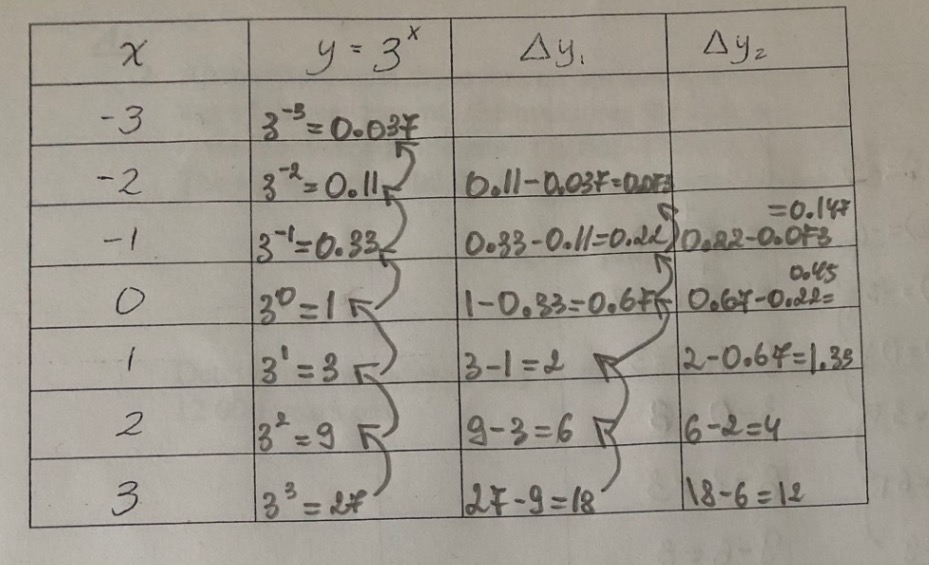 x y = 3^x Δy₁ Δy₂
-3 3^-3 = 0.037
-2 3^-2 = 0.11 0.11-0.037=0.073
-1 3^-1 = 0.33 0.33-0.11=0.22 0.22-0.073 =0.147
0 3^0 = 1 1-0.33=0.67 0.67-0.22= 0.45
1 3^1 = 3 3-1=2 2-0.67=1.33
2 3^2 = 9 9-3=6 6-2=4
3 3^3 = 27 27-9=18 18-6=12